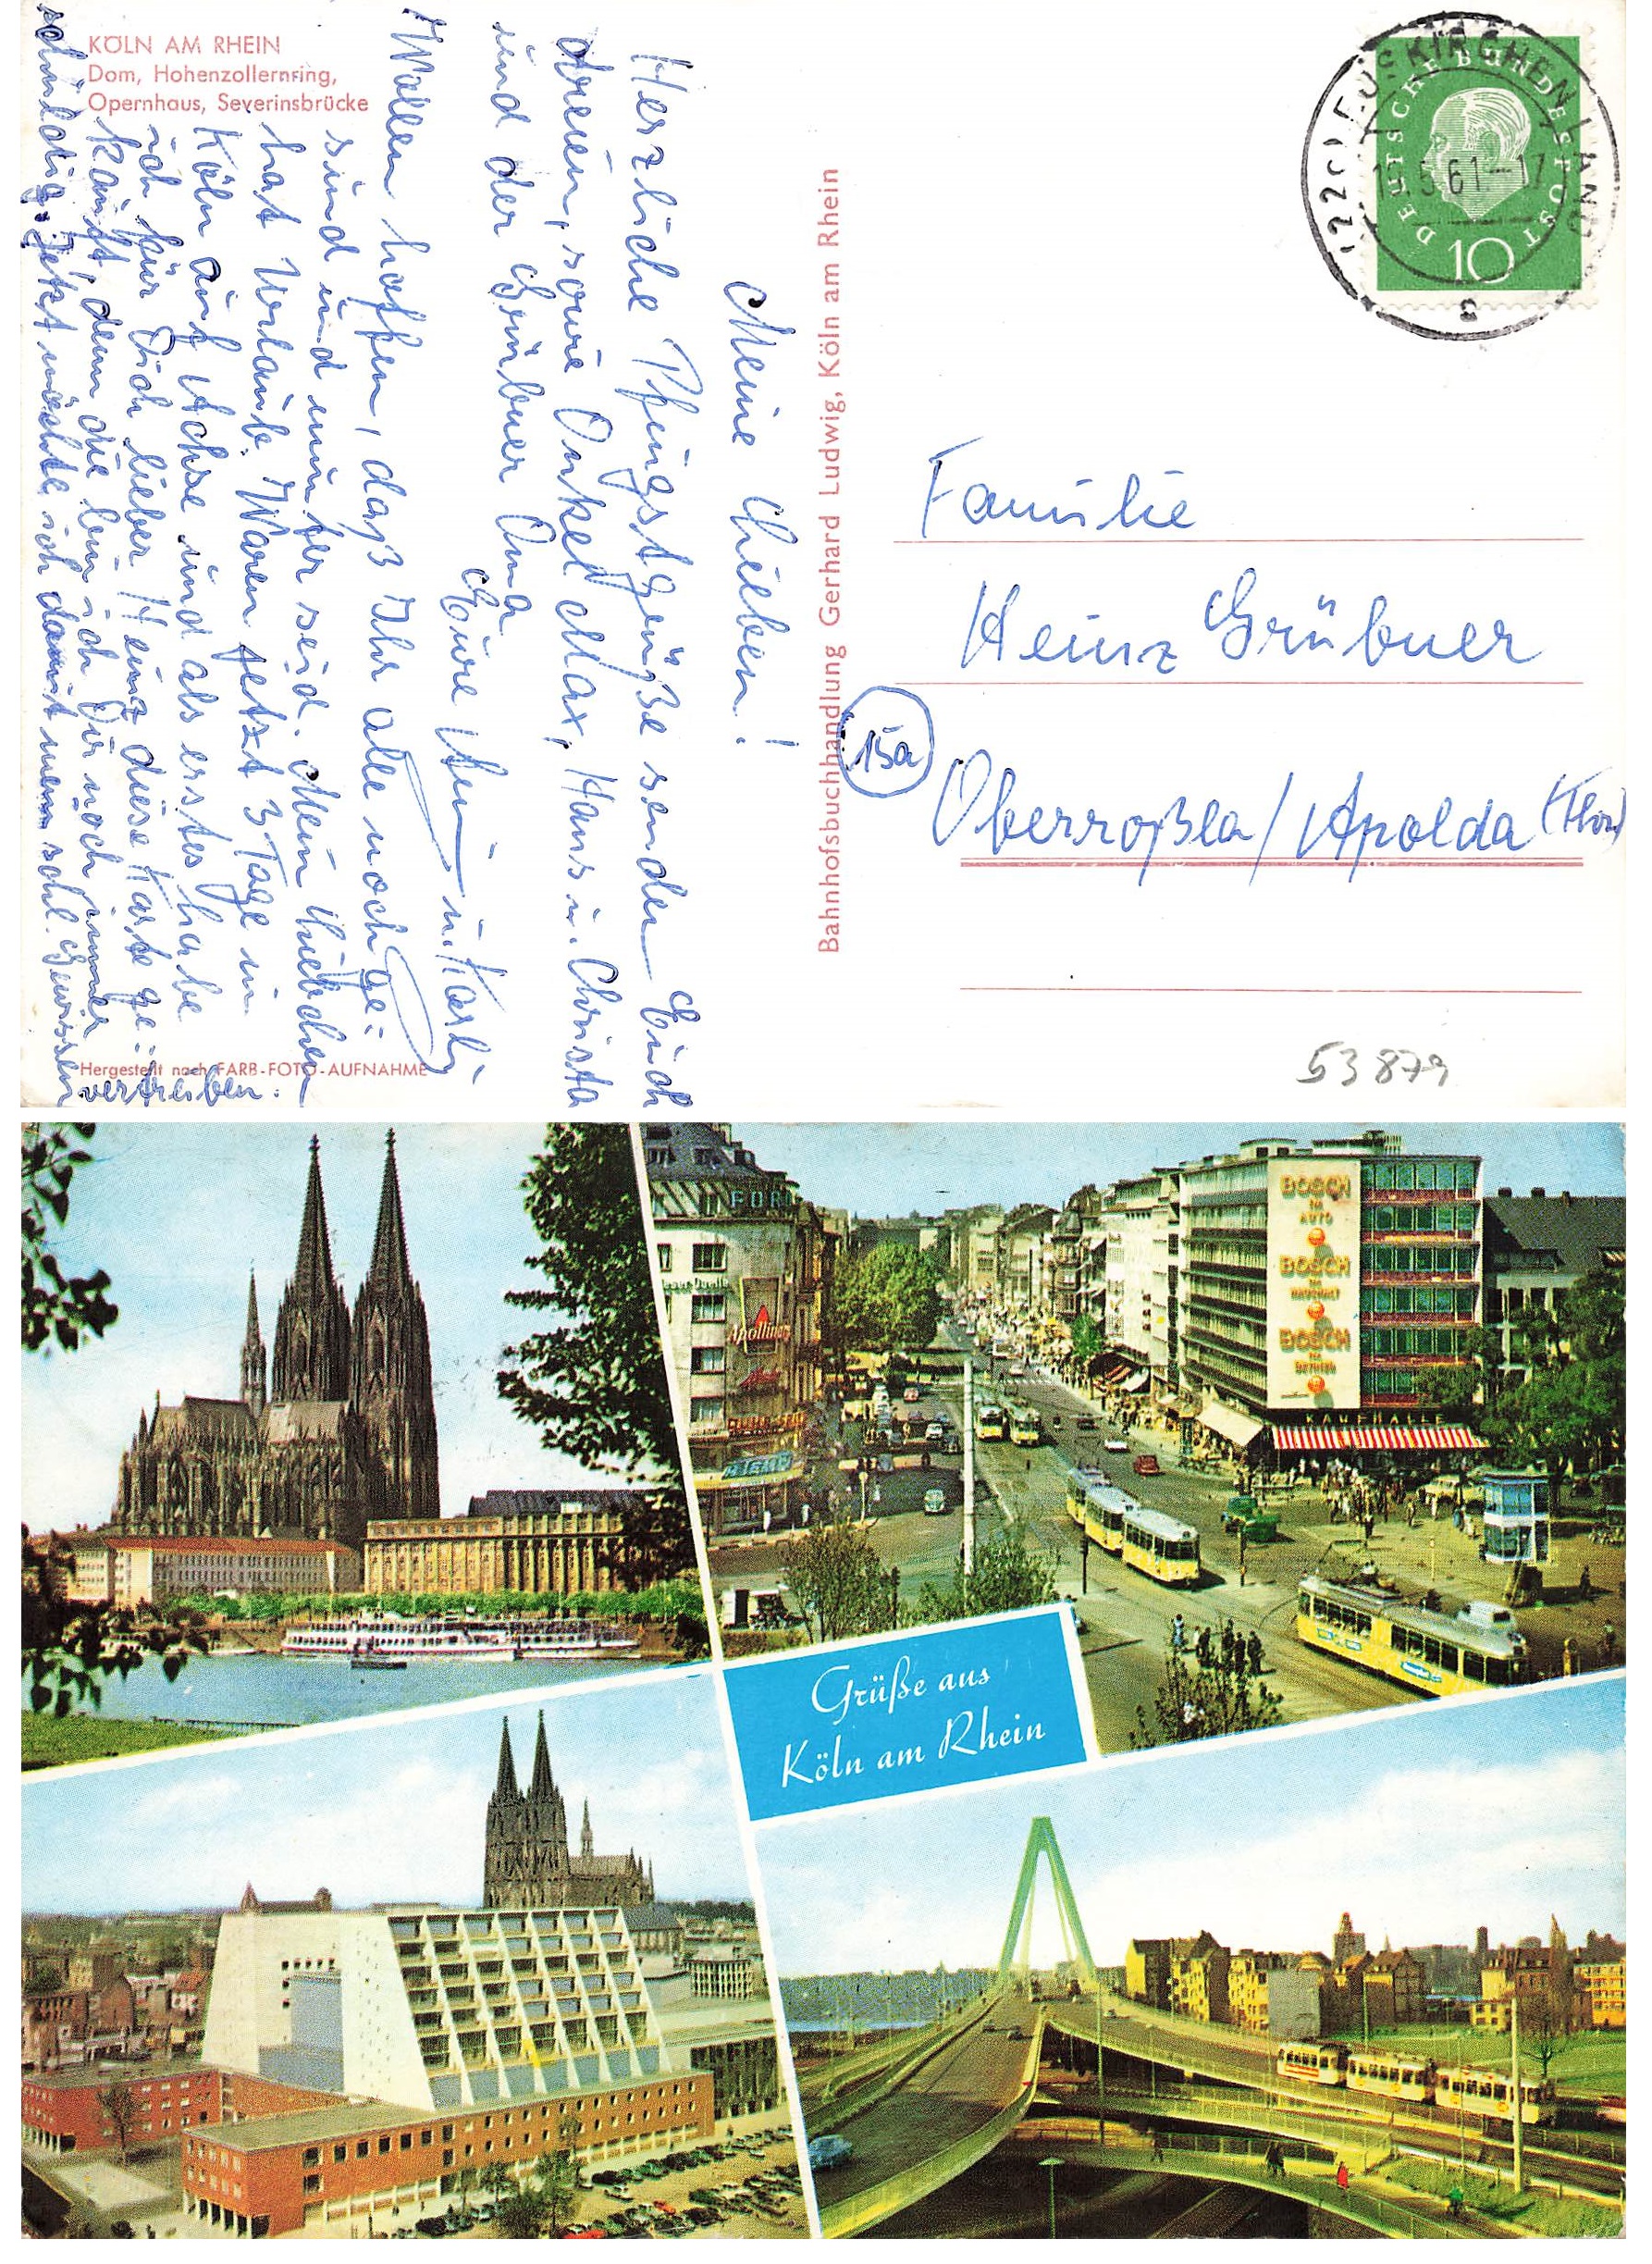 KÖLN AM RHEIN
Dom, Hohenzollernring,
Opernhaus, Severinsbrücke
Meine Lieben!
Herzliche Pfingstgrüße senden Euch
dreien, sowie Onkel Max, Hans u. Christa
und der Grübner Oma
Eure u. Karl
Wollen hoffen, daß Ihr alle noch ge-
sund und munter seid. Mein Liebchen
hat Urlaub. Waren jetzt 3 Tage in
Köln auf Achse und als erstes habe
ich für Dich lieber Heinz diese Karte ge-
kauft, denn die bin ich Dir noch immer
schuldig. Jetzt möchte ich damit mein schl. Gewissen
vertreiben.
Hergestellt nach FARB-FOTO-AUFNAHME
Bahnhofsbuchhandlung Gerhard Ludwig, Köln am Rhein
(22c) EUSKIRCHEN LAND
5.61.-17
a
DEUTSCHE BUNDESPOST
10
Familie
Heinz Grübner
15a
Oberroßla/Apolda (Thür)
53879
FORD
Apollinaris
BOSCH
IM
AUTO
BOSCH
IM
HAUSHALT
BOSCH
IM
BETRIEB
KAUFHALLE
Grüße aus
Köln am Rhein